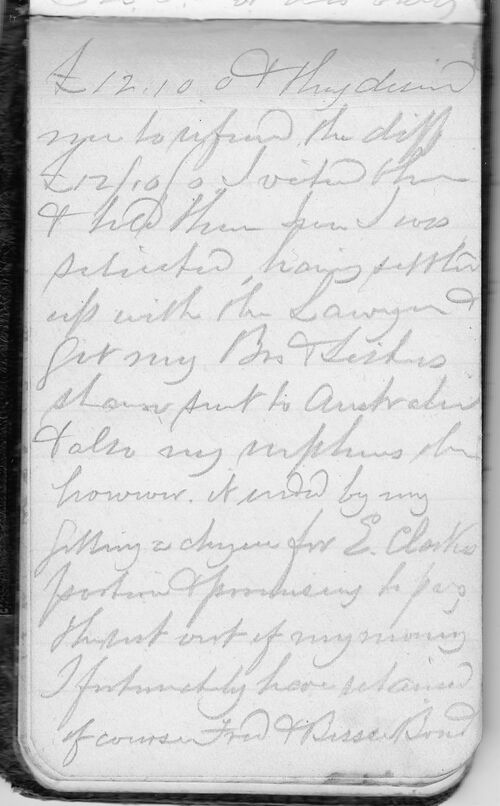 £12.10.0 & they desired
me to refund the diff
£12/10/0. I visited them
& told them how I was
situated, having settled
up with the Lawyer &
got my Bro & Sisters
share sent to Australia
& also my nephews
however. it ended by my
getting a cheque for E. Clarks
portion & promising to pay
the rest out of my money
I fortunately have retained
of course Fred & Bessie Bond